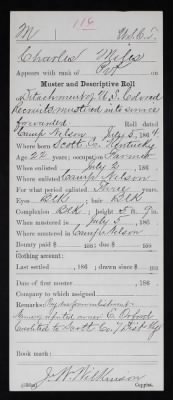 M 116 U.S.C.T.
Charles Miles
Appears with rank of Pvt on
Muster and Descriptive Roll
Detachment of U.S. Colored
Recruits, mustered into service
forwarded Roll dated
Camp Nelson July 5, 1864.
Where born Scott Co. Kentucky
Age 22 years; occupation Farmer
When enlisted July 2, 186
Where enlisted Camp Nelson
For what period enlisted Three years.
Eyes Blk; hair Blk
Complexion Blk; height 5 ft. 9 in.
When mustered in July 5, 186
Where mustered in Camp Nelson
Bounty paid $ 100; due $ 100
Clothing account:
Last settled, 186; drawn since $ 100
Due soldier $ 100
Date of first muster, 186
Company to which assigned
Remarks:
owner
Credited to Scott Co. 7 Dist Ky
Book mark:
J. W. Wilkinson
Copyist.